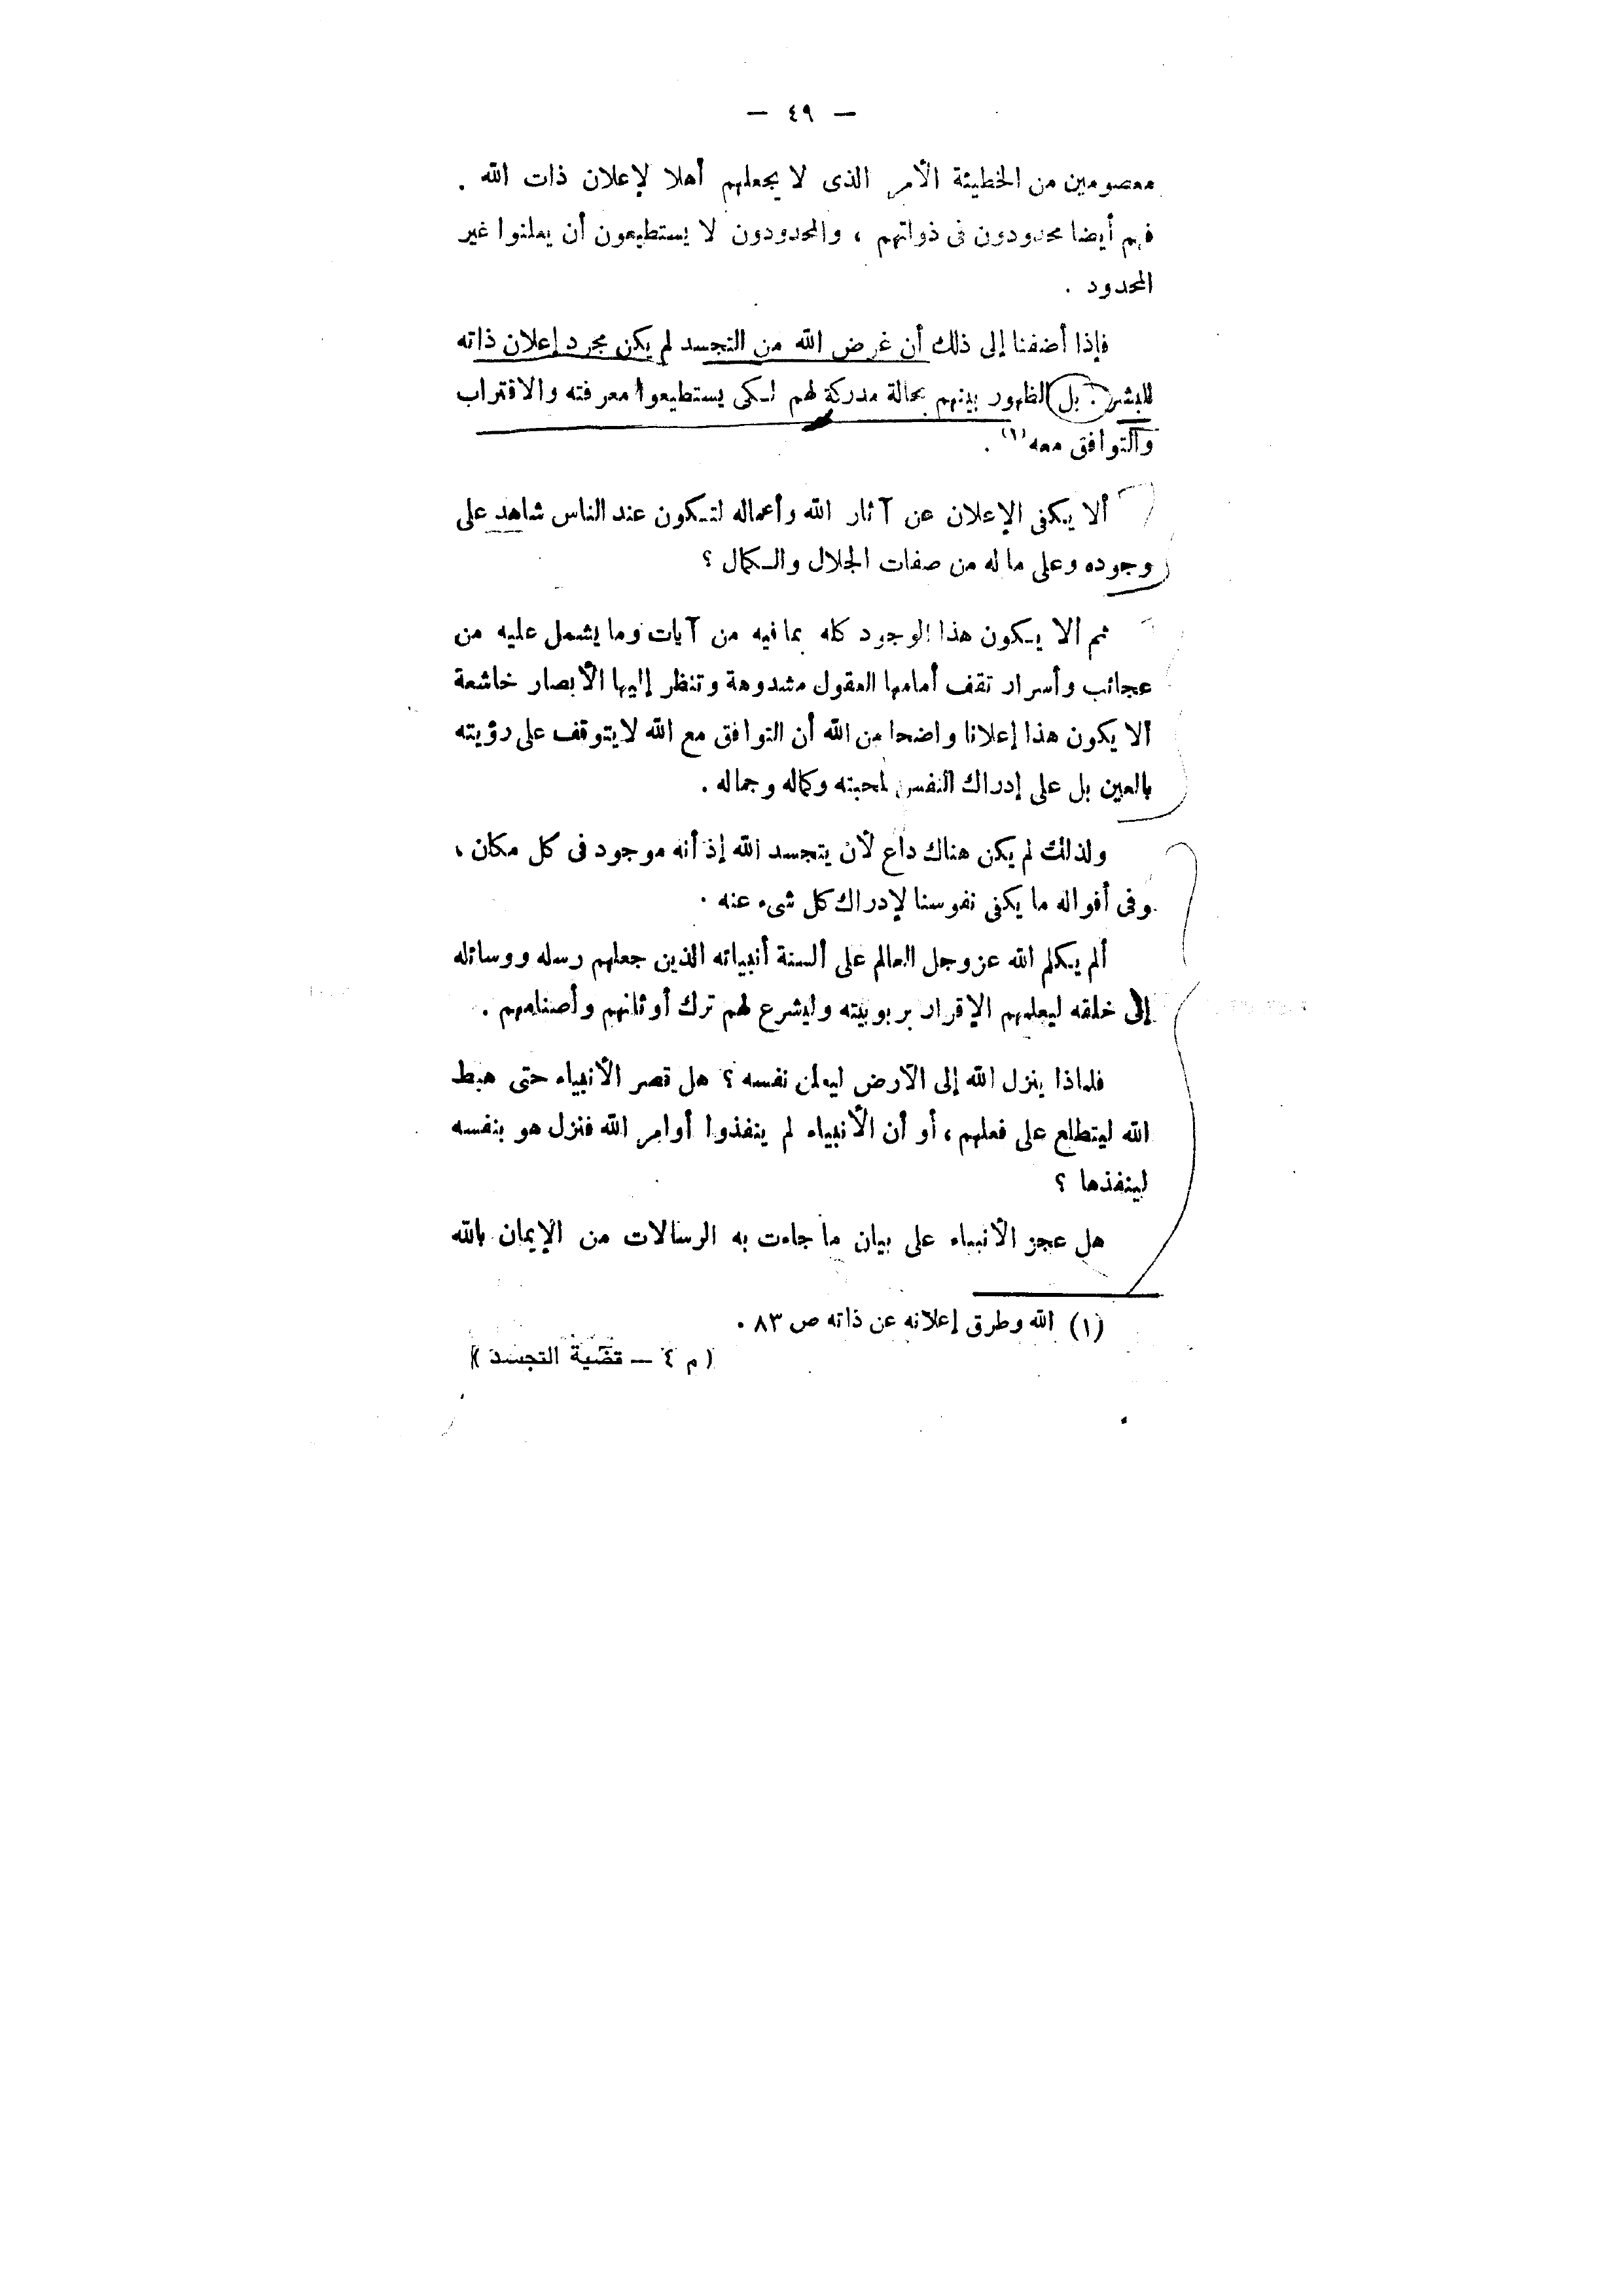 — ٤٩ —
معصومين من الخطيئة الأمر الذى لا يجعلهم أهلا لإعلان ذات الله .
فهم أيضا محدودون فى ذواتهم ، والمحدودون لا يستطيعون أن يعلنوا غير
المحدود .
فإذا أضفنا إلى ذلك أن غرض الله من التجسد لم يكن مجرد إعلان ذاته
للبشر . بل الظهور بينهم بحالة مدركة لهم لكى يستطيعوا معرفته والاقتراب
والتوافق معه (١) .
ألا يكفى الإعلان عن آثار الله وأعماله لتكون عند الناس شاهد على
وجوده وعلى ماله من صفات الجلال والكمال ؟
ثم ألا يكون هذا الوجود كله بما فيه من آيات وما يشمل عليه من
عجائب وأسرار تقف أمامها العقول مشدوهة وتنظر إليها الأبصار خاشعة
ألا يكون هذا إعلانا واضحا من الله أن التوافق مع الله لا يتوقف على رؤيته
بالعين بل على إدراك النفس لمحبته وكماله وجماله .
ولذلك لم يكن هناك داع لأن يتجسد الله إذ أنه موجود فى كل مكان ،
وفى أقواله ما يكفى نفوسنا لإدراك كل شىء عنه .
ألم يكلم الله عز وجل العالم على ألسنة أنبيائه الذين جعلهم رسله ووسائله
إلى خلقه ليعلمهم الإقرار بربوبيته وليشرع لهم ترك أوثانهم وأصنامهم .
فلماذا ينزل الله إلى الأرض ليعلن نفسه ؟ هل قصر الأنبياء حتى هبط
الله ليتطلع على فعلهم ، أو أن الأنبياء لم ينفذوا أوامر الله فنزل هو بنفسه
لينفذها ؟
هل عجز الأنبياء على بيان ما جاءت به الرسالات من الإيمان بالله
(١) الله وطرق إعلانه عن ذاته ص ٨٣ .
( م ٤ — قضية التجسد )